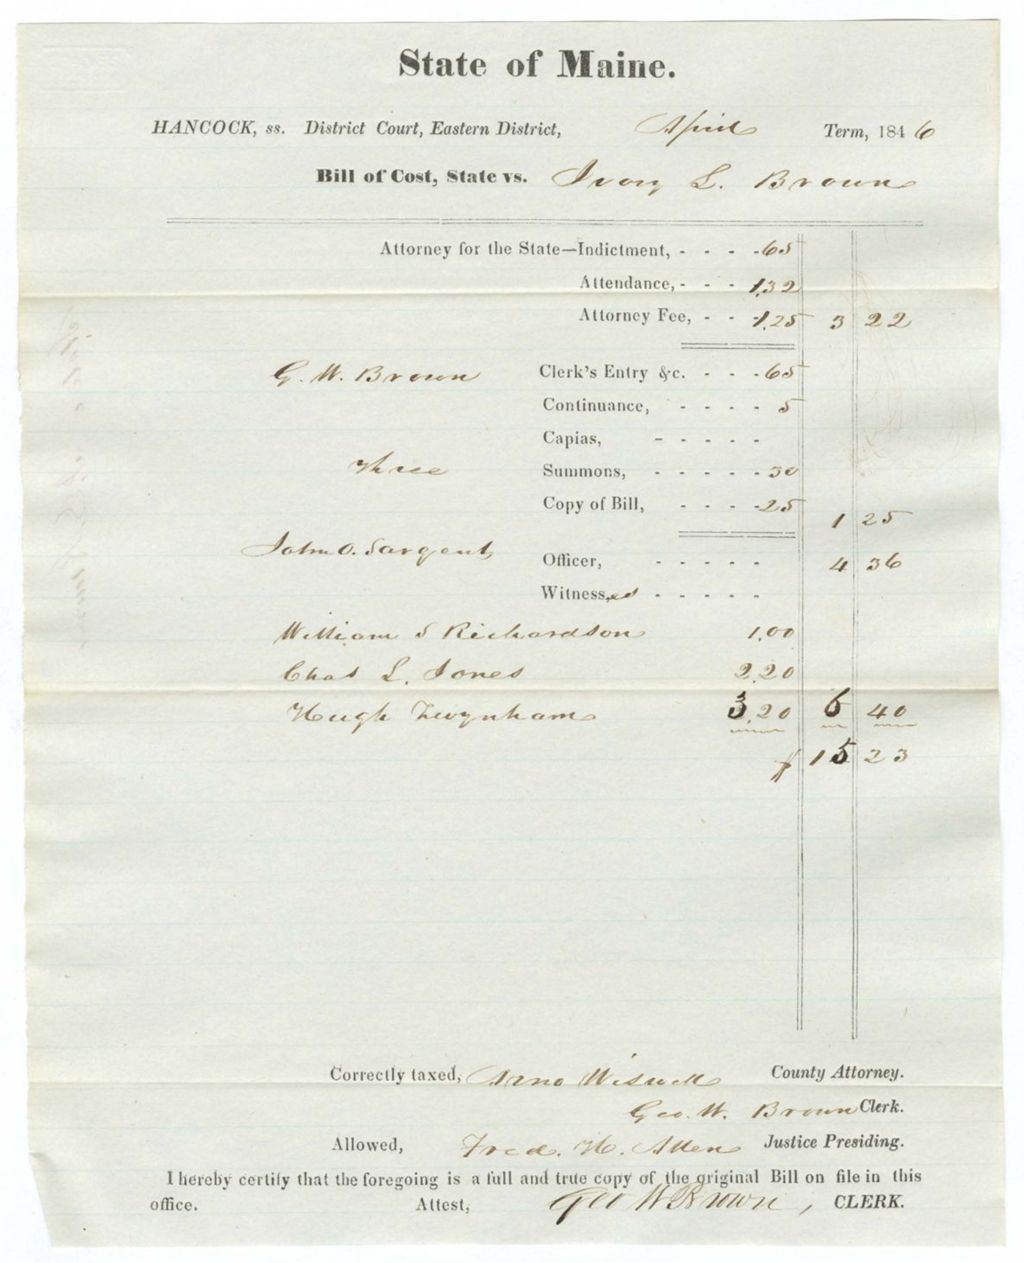 State of Maine.
HANCOCK, ss. District Court, Eastern District, April Term, 1846
Bill of Cost, State vs. Ivory L. Brown
Attorney for the State—Indictment, - - - - 65
Attendance, - - - 1,32
Attorney Fee, - - - 1,25 3 22
G. W. Brown Clerk's Entry &c. - - - 65
Continuance, - - - - 5
Capias, - - - - -
Three Summons, - - - - - 30
Copy of Bill, - - - - 25 1 25
John O. Sargent, Officer, - - - - - 4 36
Witness,es - - - - -
William S Richardson 1,00
Chas L. Jones 2,20
Hugh Twynham 3,20 6 40
$ 15 23
Correctly taxed, Arno Wiswell County Attorney.
Geo. W. Brown Clerk.
Allowed, Fred. H. Allen Justice Presiding.
I hereby certify that the foregoing is a full and true copy of the original Bill on file in this
office. Attest, Geo W Brown, CLERK.